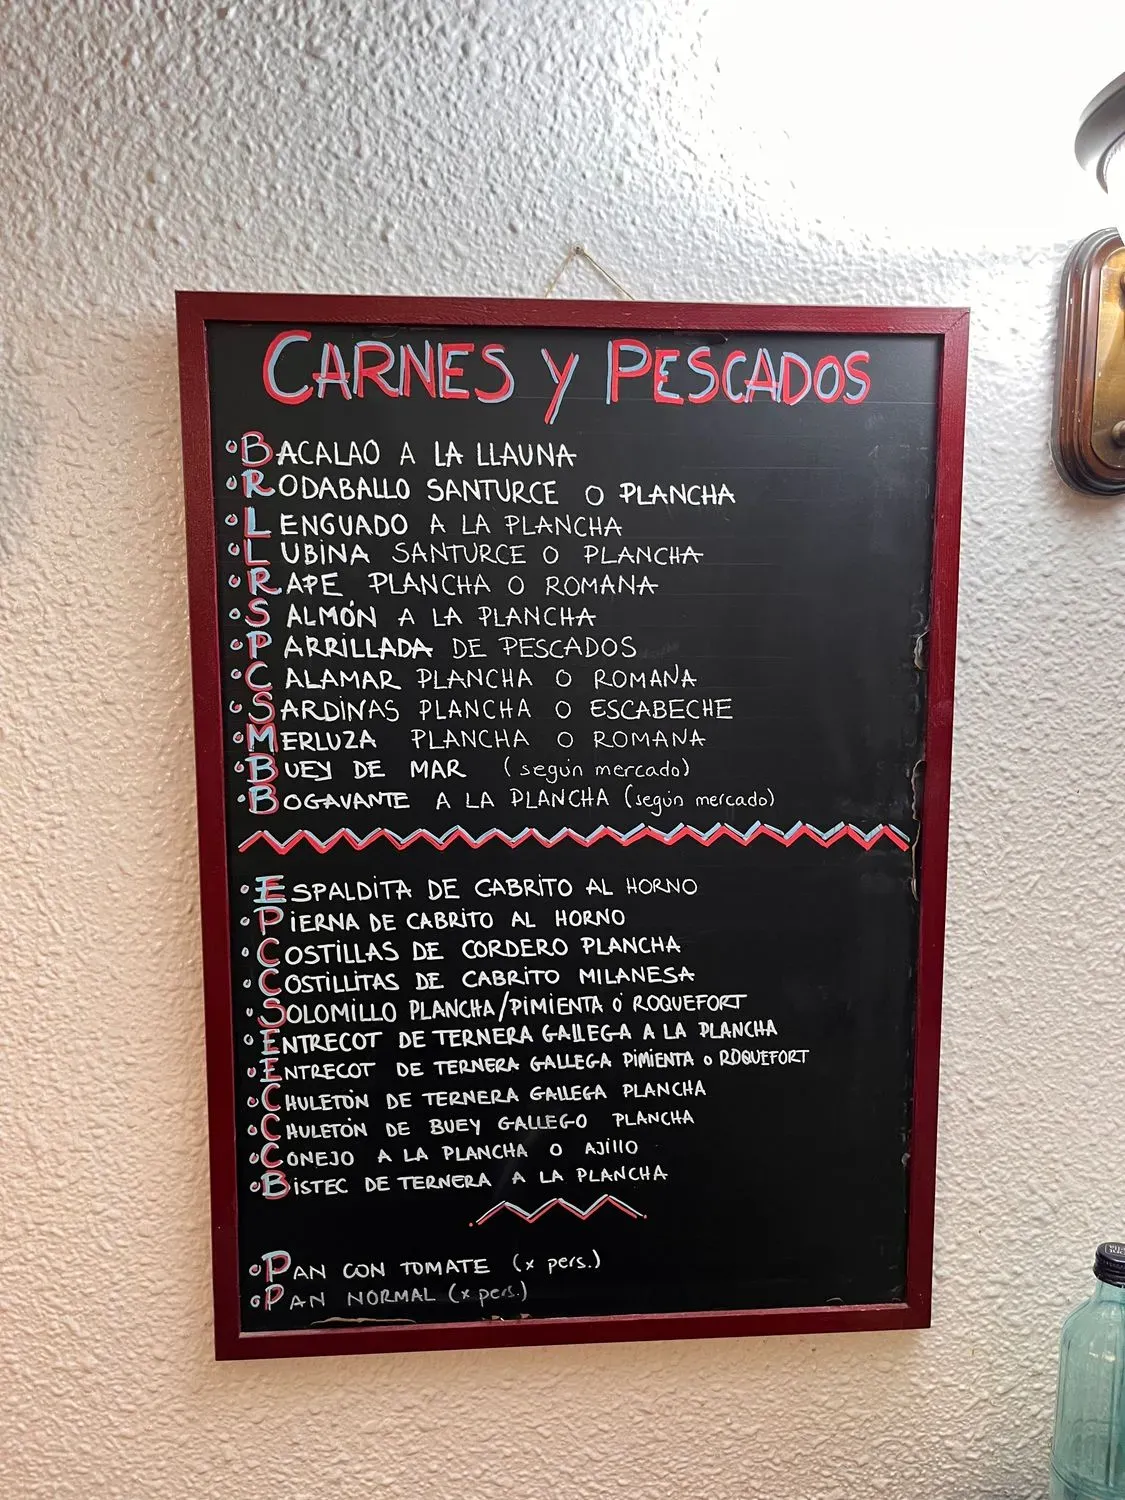 CARNES Y PESCADOS
BACALAO A LA LLAUNA
RODABALLO SANTURCE O PLANCHA
LENGUADO A LA PLANCHA
LUBINA SANTURCE O PLANCHA
RAPE PLANCHA O ROMANA
SALMÓN A LA PLANCHA
PARRILLADA DE PESCADOS
CALAMAR PLANCHA O ROMANA
SARDINAS PLANCHA O ESCABECHE
MERLUZA PLANCHA O ROMANA
BUEY DE MAR (según mercado)
BOGAVANTE A LA PLANCHA (según mercado)
ESPALDITA DE CABRITO AL HORNO
PIERNA DE CABRITO AL HORNO
COSTILLAS DE CORDERO PLANCHA
COSTILLITAS DE CABRITO MILANESA
SOLOMILLO PLANCHA/PIMIENTA Ó ROQUEFORT
ENTRECOT DE TERNERA GALLEGA A LA PLANCHA
ENTRECOT DE TERNERA GALLEGA PIMIENTA O ROQUEFORT
CHULETÓN DE TERNERA GALLEGA PLANCHA
CHULETÓN DE BUEY GALLEGO PLANCHA
CONEJO A LA PLANCHA O AJILLO
BISTEC DE TERNERA A LA PLANCHA
PAN CON TOMATE (x pers.)
PAN NORMAL (x pers.)